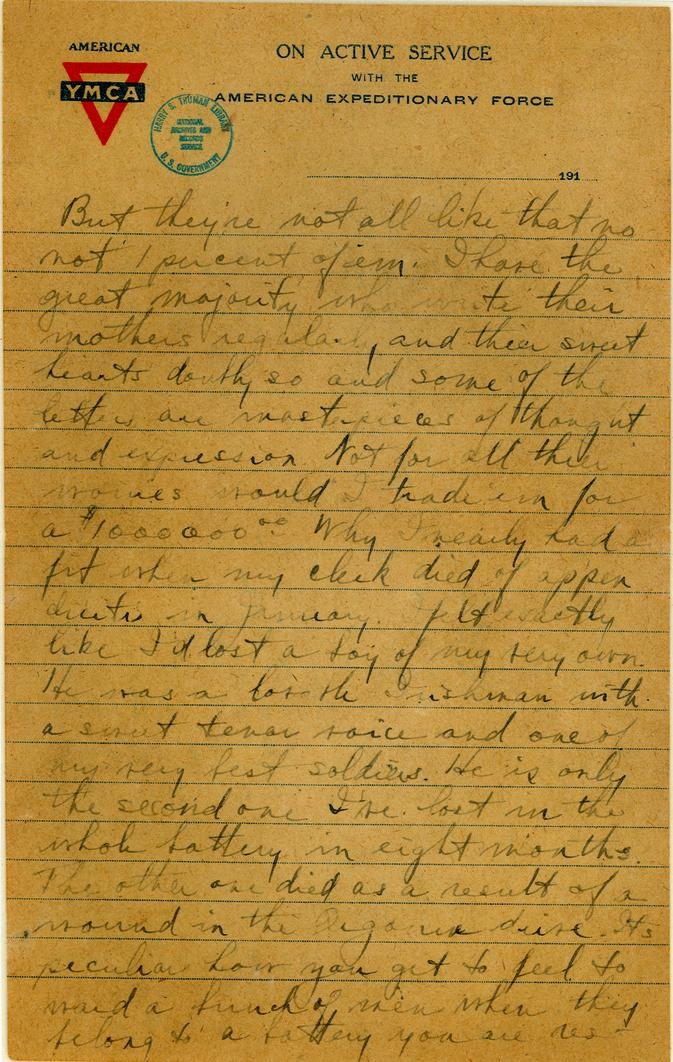 AMERICAN
YMCA
ON ACTIVE SERVICE
WITH THE
AMERICAN EXPEDITIONARY FORCE
HARRY S. TRUMAN LIBRARY
NATIONAL
ARCHIVES AND
RECORDS
SERVICE
U.S. GOVERNMENT
191
But they're not all like that no
not 1 percent of em. I have the
great majority who write their
mothers regularly and their sweet
hearts doubly so and some of the
letters are masterpieces of thought
and expression. Not for all their
worries would I trade em for
a $1000000.00 Why I nearly had a
fit when my clerk died of appen
dicitis in January. I felt exactly
like I'd lost a boy of my very own.
He was a Irishman with
a sweet tenor voice and one of
my very best soldiers. He is only
the second one I've lost in the
whole battery in eight months.
The other one died as a result of a
wound in the Argonne drive. Its
peculiar how you get to feel to
ward a bunch of men when they
belong to a battery you are res-